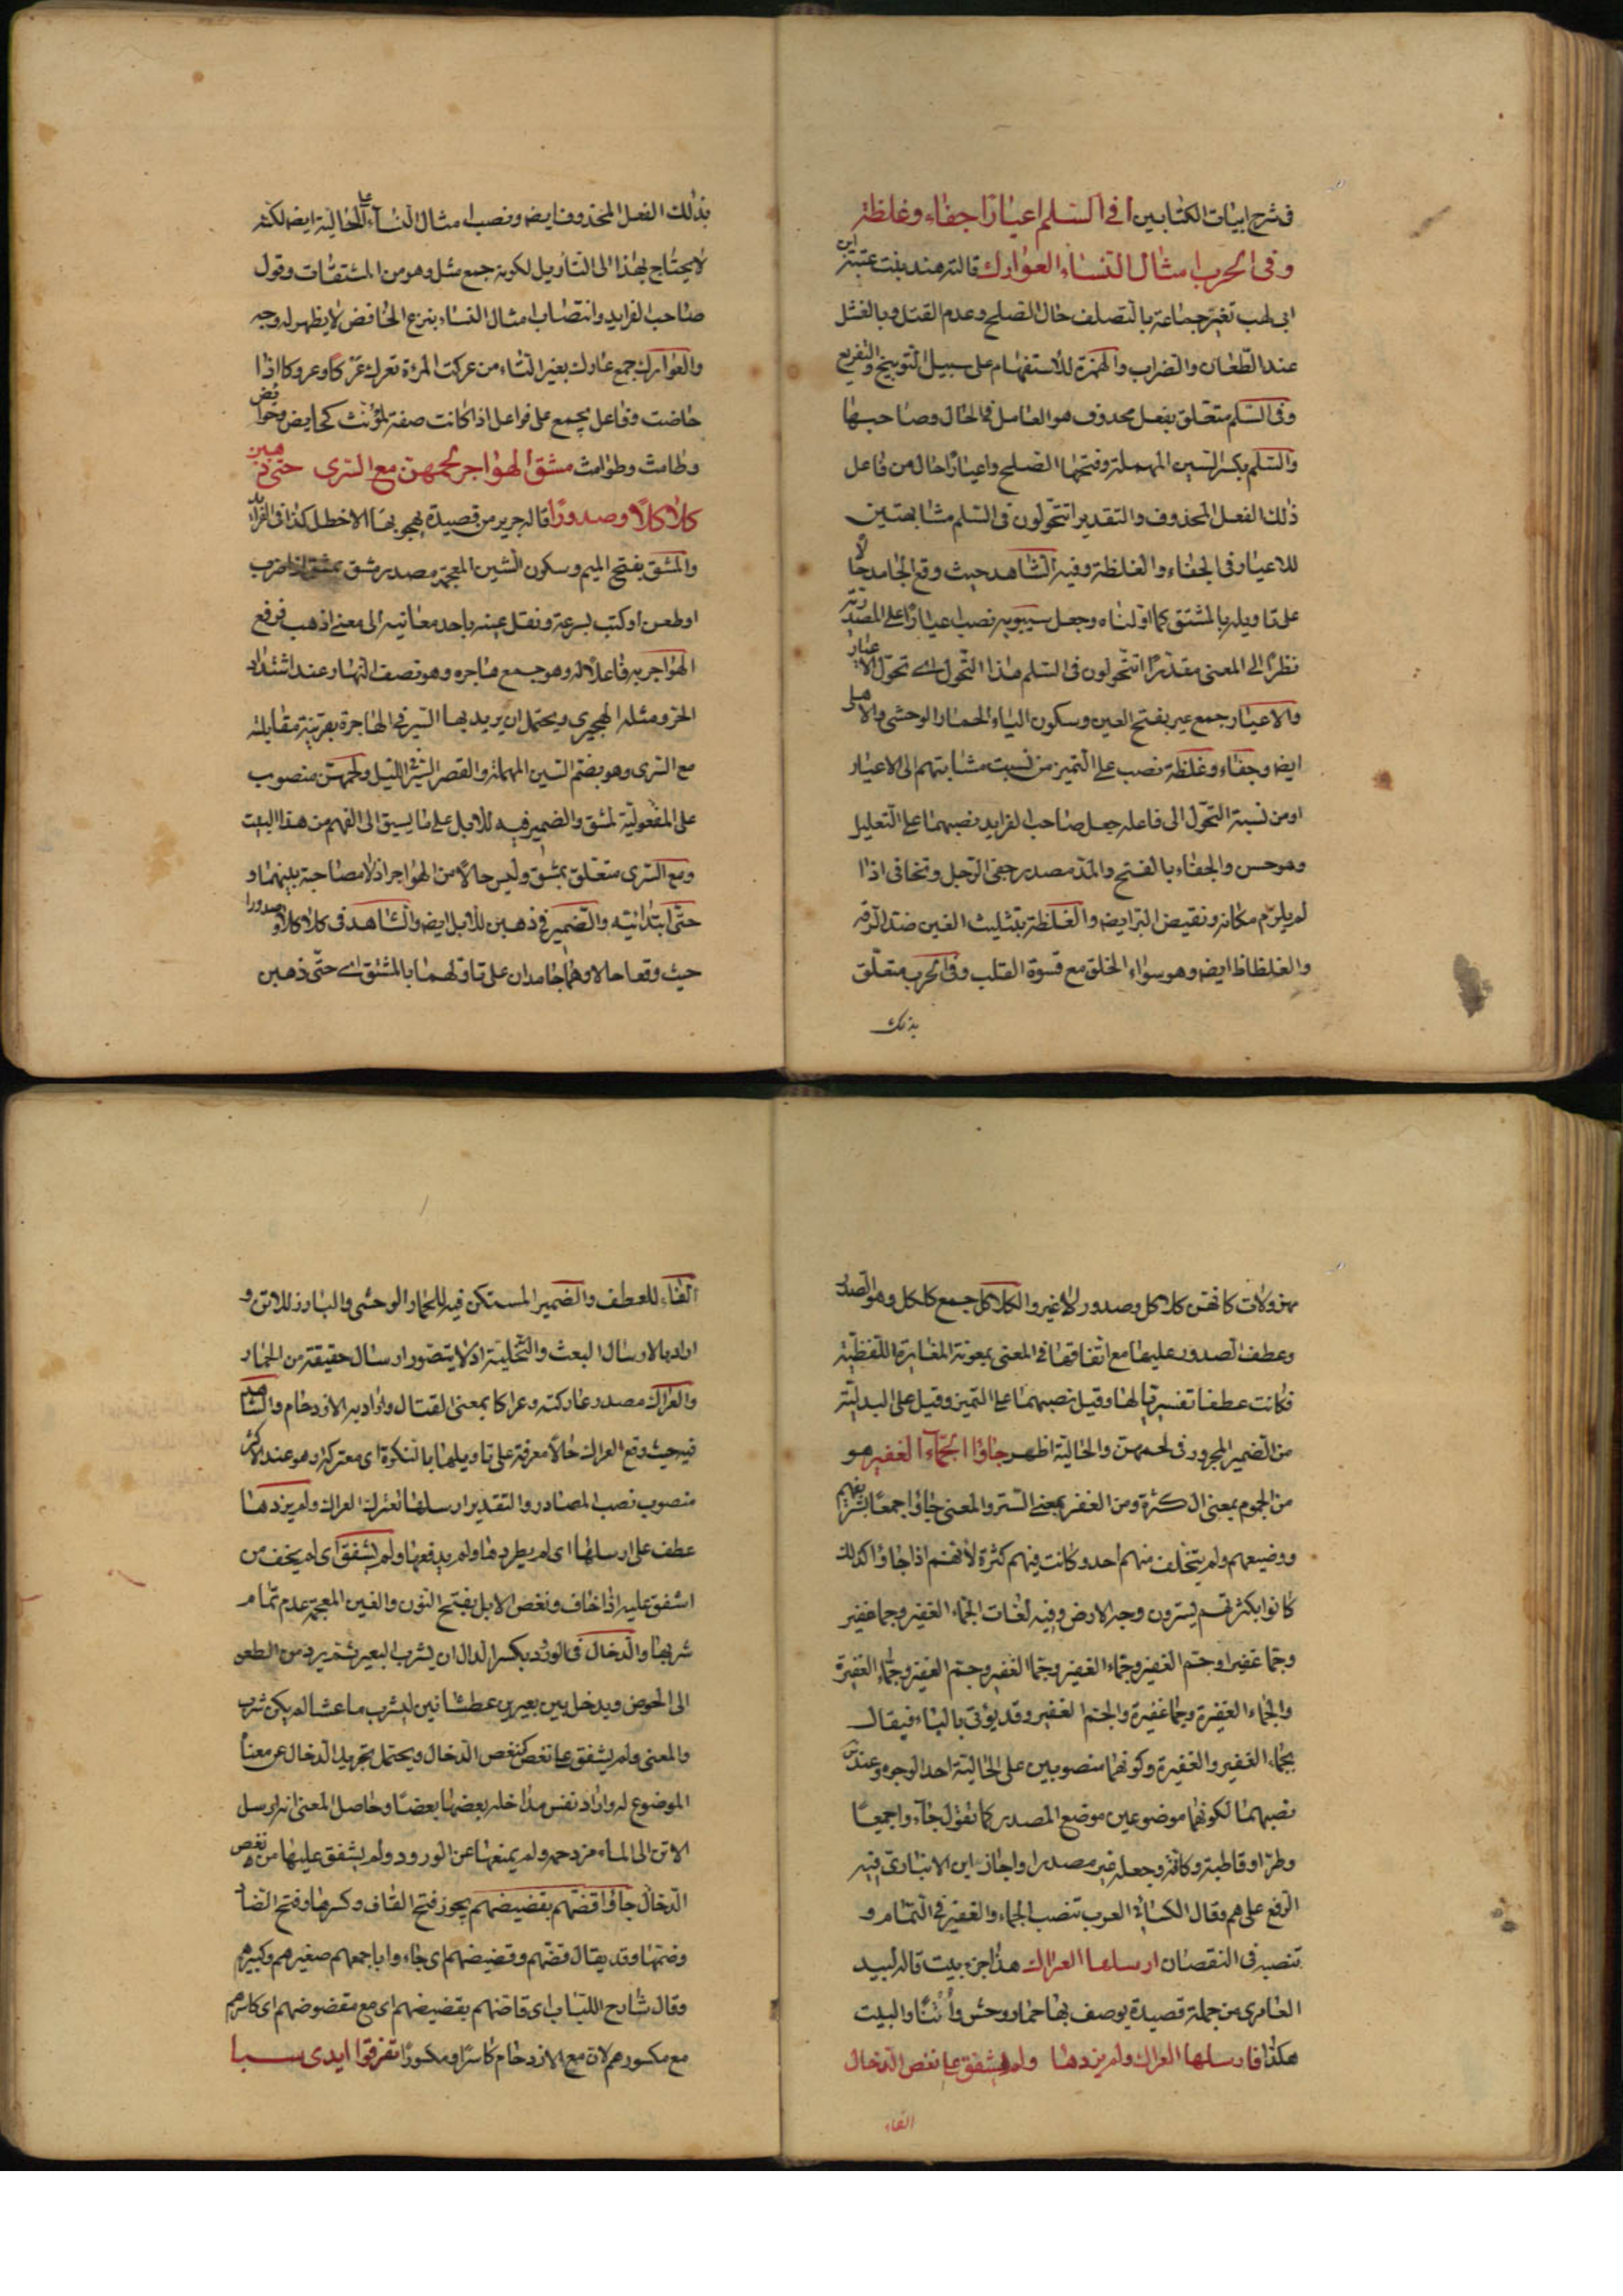 فى شرح ابيات الكتابين افى السلم اعيارا جفاء وغلظة
وفى الحرب امثال النساء العوارك قالته هند بنت عتبة ابن
ابى لهب تعير جماعة بالتصلف حال الصلح وعدم القتل وبالفشل
عند الطعان والضراب والهمزة للاستفهام على سبيل التوبيخ والتقريع
وفى السلم متعلق بفعل محذوف هو العامل فى الحال وصاحبها
والسلم بكسر السين المهملة وفتحها الصلح واعيارا حال من فاعل
ذلك الفعل المحذوف والتقدير اتتحولون فى السلم مشابهتين
للاعيار فى الجفاء والغلظة وفيه الشاهد حيث وقع الجامد حالا
على تاويله بالمشتق كما اولناه وجعل سيبويه نصب اعيارا على المصدرية
نظرا الى المعنى مقدرا اتتحولون فى السلم هذا التحول اى تحول الاعيار
والاعيار جمع عير بفتح العين وسكون الياء الحمار الوحشى والاهلى
ايضا وجفاء وغلظة نصب على التميز من نسبت مشابتهم الى الاعيار
او من نسبة التحول الى فاعله جعل صاحب الفرايد نصبهما على التعليل
وهو حسن والجفاء بالفتح والمد مصدر جفى الرجل وتجافى اذا
لم يلزم مكانه ونقيض البر ايضا والغلظة بتثليث الغين ضد الرقة
والغلظاظ ايضا وهو سواء الخلق مع قسوة القلب وفى الحرب متعلق
بذلك
بذلك الفعل المحذوف ايضا ونصب امثال النساء على الحالية ايضا لكنه
لا يحتاج بهذا الى التاويل لكونه جمع مثل وهو من المشتقات وقول
صاحب الفرايد وانتصاب امثال النساء بنزع الخافض لا يظهر له وجه
والعوارك جمع عارك بغير التاء من عركت المرءة تعرك عركا وعروكا اذا
حاضت وفاعل يجمع على فواعل اذا كانت صفة لمؤنث كحايض وحوايض
وطامث وطوامث مشق الهواجر لحمهن مع السرى حتى ذهبن
كلاكلا وصدورا قاله جرير من قصيدة يهجو بها الاخطل كذا فى الفرايد
والمشق بفتح الميم وسكون الشين المعجمة مصدر مشق يمشق اذا ضرب
او طعن او كتب بسرعة ونقل عينه باحد معانيه الى معنى اذهب فرفع
الهواجر به فاعلا له وهو جمع هاجره وهو نصف النهار عند اشتداد
الحر ومثله الهجيرى ويحتمل ان يريد بها السير فى الهاجرة بقرينة مقابلته
مع السرى وهو بضم السين المهملة والقصر السير الليل ولحمهن منصوب
على المفعولية لمشق والضمير فيه للابل على ما يسبق الى الفهم من هذا البيت
ومع السرى متعلق بمشق وليس حالا من الهواجر اذ لا مصاحبة بينهما و
حتى ابتدائيه والضمير فى ذهبن للابل ايضا والشاهد فى كلاكلا وصدورا
حيث وقعا حالا وهما جامدان على تاولهما بالمشتق اى حتى ذهبن
مهزولات كانهن كلاكل وصدور لا غير والكلاكل جمع كلكل وهو الصدر
وعطف الصدور عليها مع اتفاقها فى المعنى بمعونة المغايرة اللفظية
فكانت عطفا تفسيريا لها وقيل نصبهما على التميز وقيل على البدلية
من الضمير المجرور فى لحمهن والحالية اظهر جاؤا الجماء الغفير هو
من الجموم بمعنى الكثرة ومن الغفر بمعنى الستر والمعنى جاؤا جمعا بشريفهم
ووضيعهم ولم يتخلف منهم احد وكانت فيهم كثرة لانهم اذا جاؤا كذلك
كانوا بكثرتهم يسترون وجه الارض وفيه لغات الجماء الغفير وجما غفير
وجما غفيرا وجم الغفير وجماء الغفير وجما الغفير وجم الغفير وجماء الغفيرة
والجماء الغفيرة وجما غفيرة والجم الغفير وقد يؤتى بالباء فيقال
بجماء الغفير والغفيرة وكونهما منصوبين على الحالية احد الوجوه وعند
نصبهما لكونهما موضوعين موضع المصدر كما تقول جاؤا جميعا
وطرا وقاطبة وكافة وجعله غير مصدر واجاز ابن الانبارى فيه
الرفع على هم وقال الكسائى العرب تنصب الجماء والغفير فى التمام و
تنصبه فى النقصان ارسلها العراك هذا جزء بيت قاله لبيد
العامرى من جملة قصيدة يوصف بها حمار وحش وأتنا والبيت
هكذا فارسلها العراك ولم يزدها ولم يشفق على نغص الدخال
الفاء
الفاء للعطف والضمير المستكن فيه للحمار الوحشى والبارز للاتن و
اراد بالارسال البعث والتخلية اذ لا يتصور ارسال حقيقة من الحمار
والعراك مصدر عاركته وعراكا بمعنى القتال واراد به الازدحام والشاهد
فيه حيث وقع العراك حالا معرفة على تاويلها بالنكرة اى معتركة وهو عند الاكثر
منصوب نصب المصادر والتقدير ارسلها تعترك العراك ولم يزدها
عطف على ارسلها اى لم يطردها ولم يدفعها ولم يشفق اى لم يخف من
اشفق عليه اذا خاف ونغص الابل بفتح النون والغين المعجمة عدم تمام
شربها والدخال فى الورد بكسر الدال ان يشرب البعير ثم يرد من العطن
الى الحوض ويدخل بين بعيرين عطشانين ليشرب ما عساه لم يكن شرب
والمعنى ولم يشفق على نغص كنغص الدخال ويحتمل تجريد الدخال عن معناه
الموضوع له واراد نفس مداخله بعضها بعضا وحاصل المعنى انه ارسل
الاتن الى الماء مزدحمه ولم يمنعها عن الورود ولم يشفق عليها من نغص
الدخال جاؤا قضهم بقضيضهم يجوز فتح القاف وكسرها وفتح الضاد
وضمها وقد يقال قضهم وقضيضهم اى جاءوا باجمعهم صغيرهم وكبيرهم
وقال شارح اللباب اى قاضهم بقضيضهم اى مع مقضوضهم اى كاسرهم
مع مكسورهم لان مع الازدحام كاسرا ومكسورا تفرقوا ايدى سبا